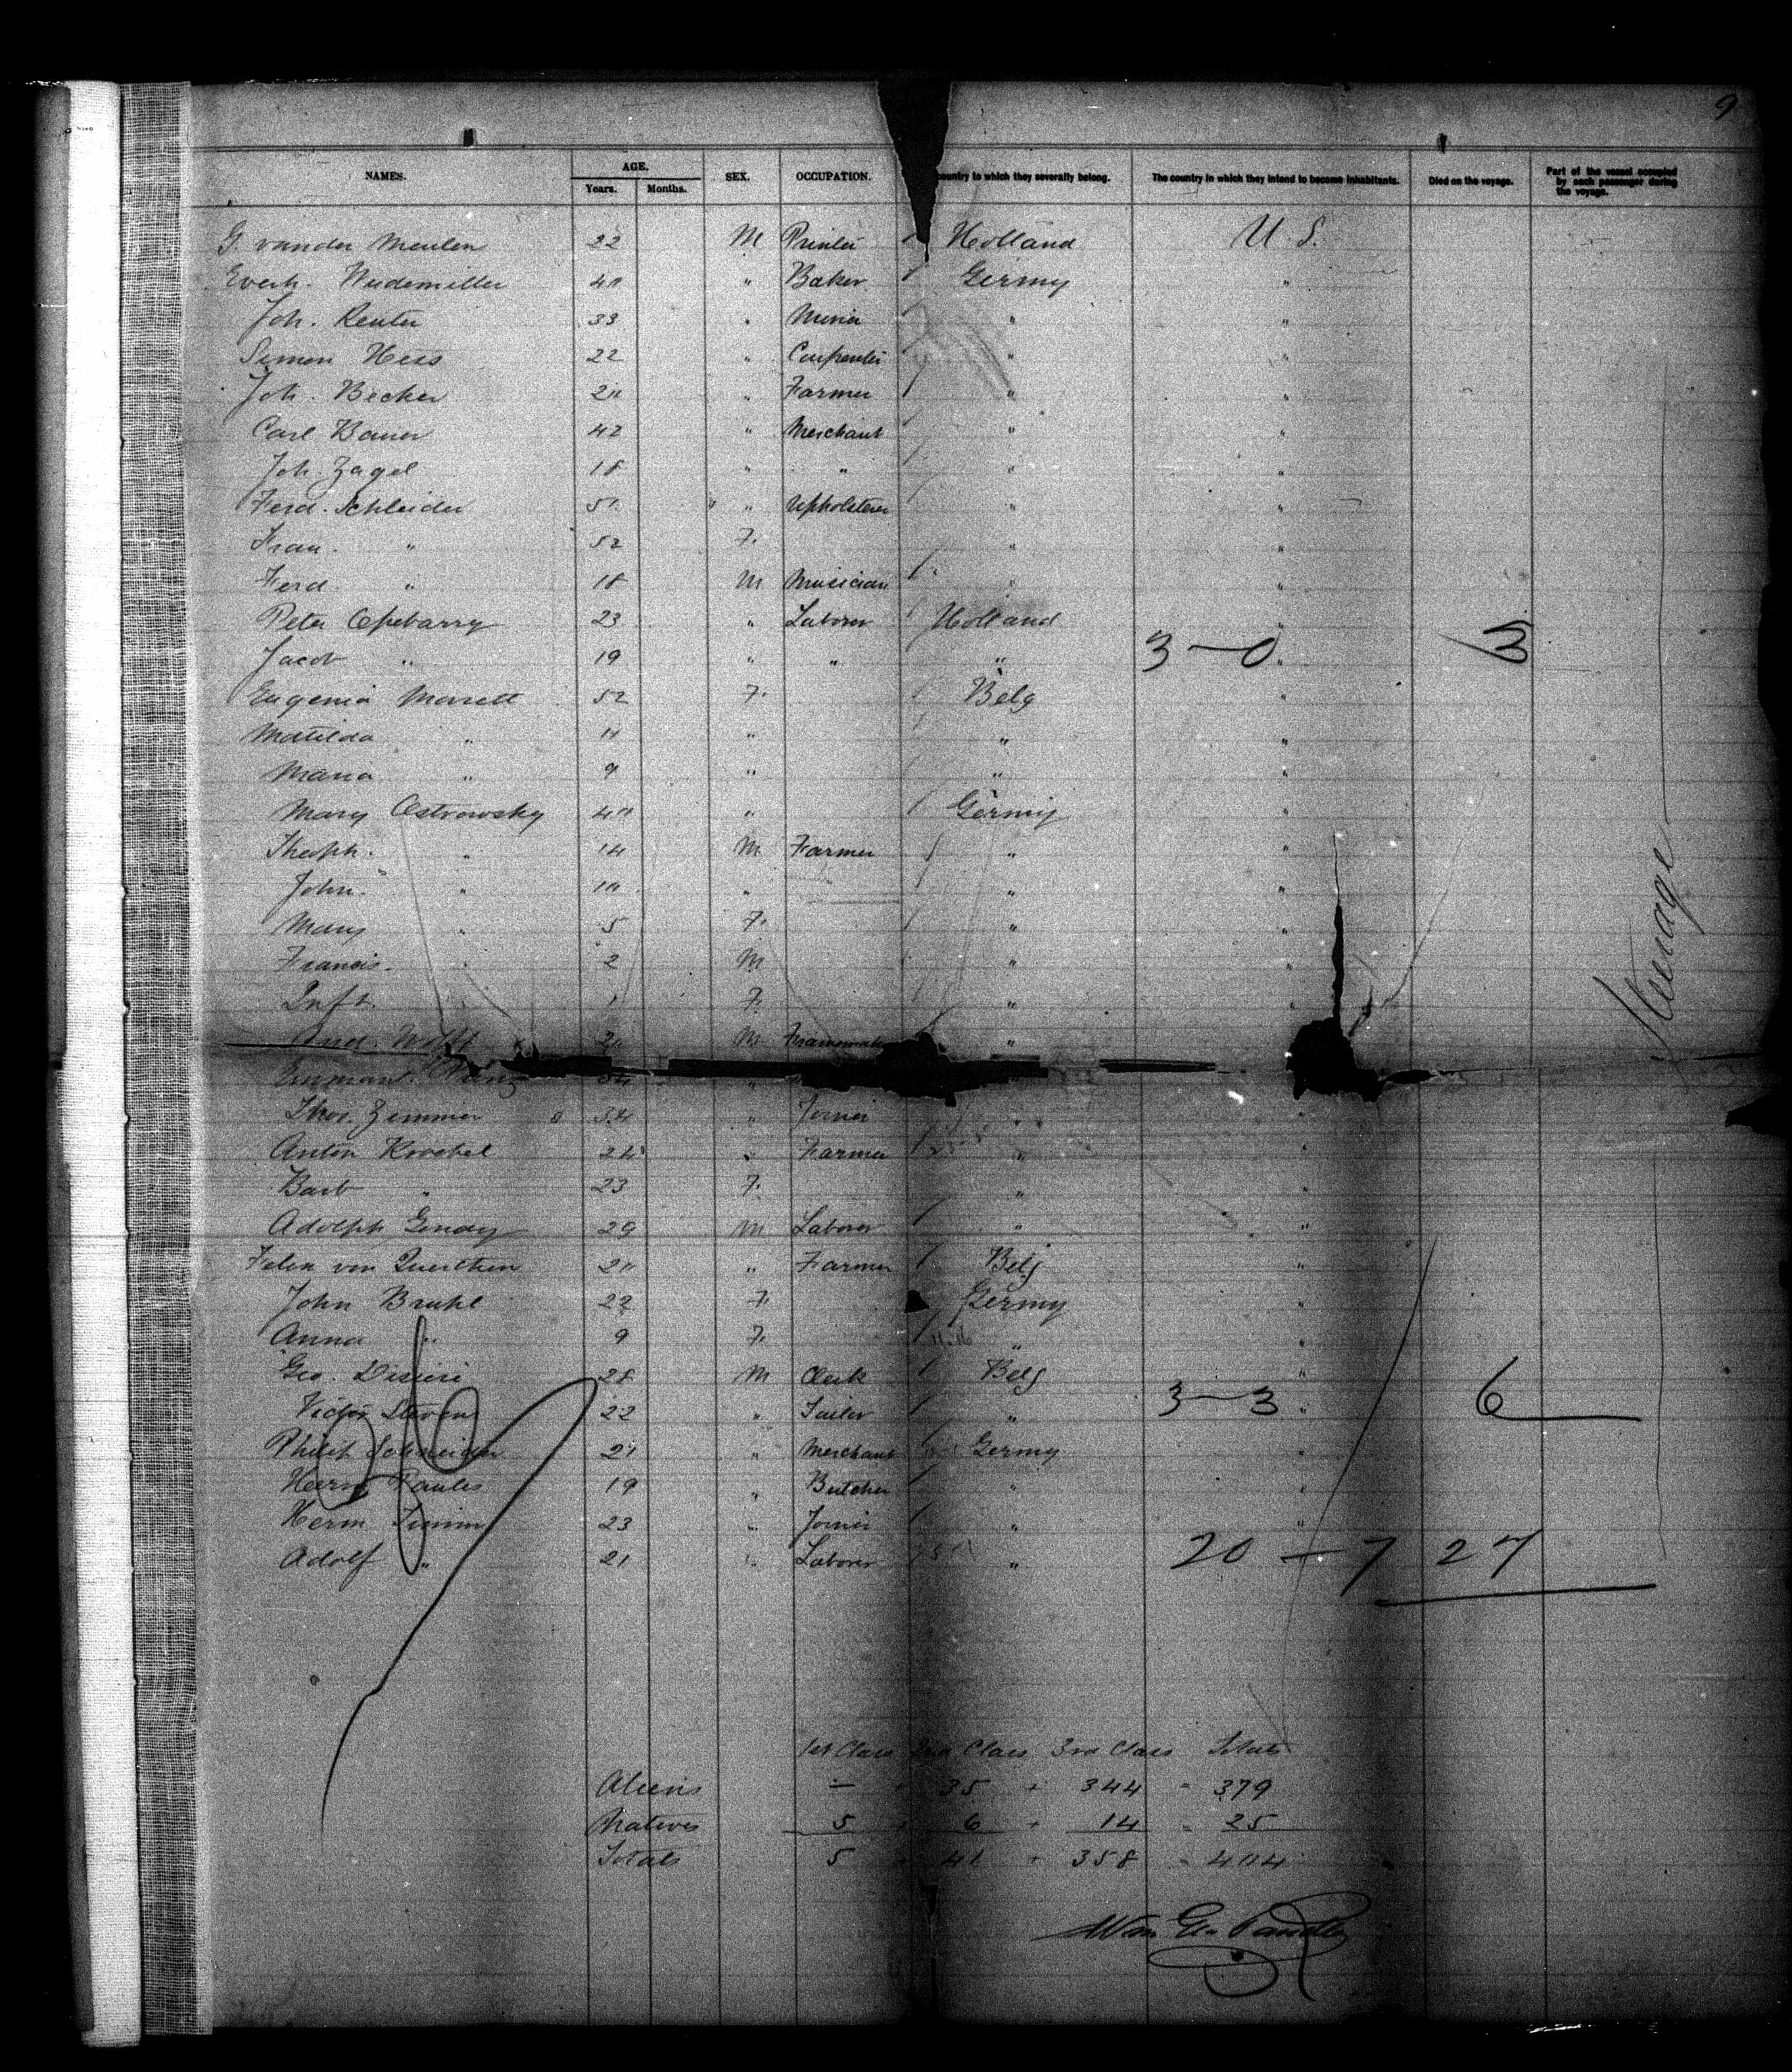 9
NAMES. AGE. SEX. OCCUPATION. country to which they severally belong. The country in which they intend to become inhabitants. Died on the voyage. Part of the vessel occupied by each passenger during the voyage.
Years. Months.
G. vander Meulen 22 M Printer Holland U. S.
Everh. Wedemiller 40 " Baker Germy "
Joh. Reuter 33 " " "
Simon Hess 22 " Carpenter " "
Joh. Becker 20 " Farmer " "
Carl Bauer 42 " Merchant " "
Joh. Zagel 18 " " " "
Ferd. Schleider 51 " Upholsterer " "
Frau. " 52 F. " "
Ferd " 18 M Musician " "
Peter 23 " Laborer Holland "
Jacob " 19 " " " 3 — 0 " 3
Eugenia Morrett 52 F. Belg "
Matilda " 11 " " "
Maria " 9 " " "
Mary Ostrowsky 40 " Germy "
Theoph. " 14 M Farmer " "
John. " 10 " " "
Mary " 5 F. " "
Francis. " 2 M " "
Inft. 1 F. " "
And. Wolff 20 M "
34 "
Thos. Zimmer 34 " Joiner " "
Anton Kroebel 24 " Farmer " "
Barb " 23 F. " "
Adolph Gendy 29 M Laborer " "
Felix von Querthen 20 " Farmer Belg "
John Bruhl 22 F. Germy "
Anna " 9 F. " "
Geo. Disiere 28 M Clerk Belg "
Victor Steven 22 " Tailor " 3 — 3 " 6
Philip Schneider 21 " Merchant Germy "
Herm Paules 19 " Butcher " "
Herm Timm 23 " Joiner " "
Adolf " 21 " Laborer " 20 — 7 27
Steerage
1st Class 2nd Class 3rd Class Totals
Aliens — + 35 + 344 = 379
Natives 5 + 6 + 14 = 25
Totals 5 + 41 + 358 = 404